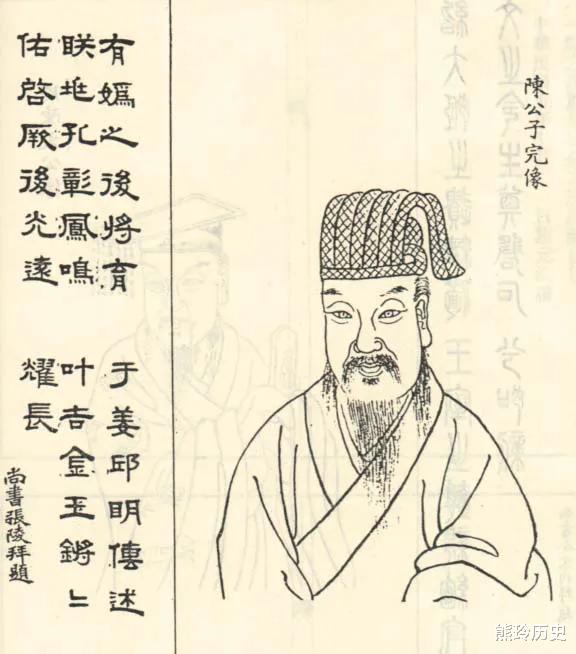 陳公子完像
有媯之後將育 于姜邱明傳述
眹兆孔彰鳳鳴 叶吉金玉鏘〻
佑啓厥後光遠 耀長
尚書張陵拜題
熊玲历史